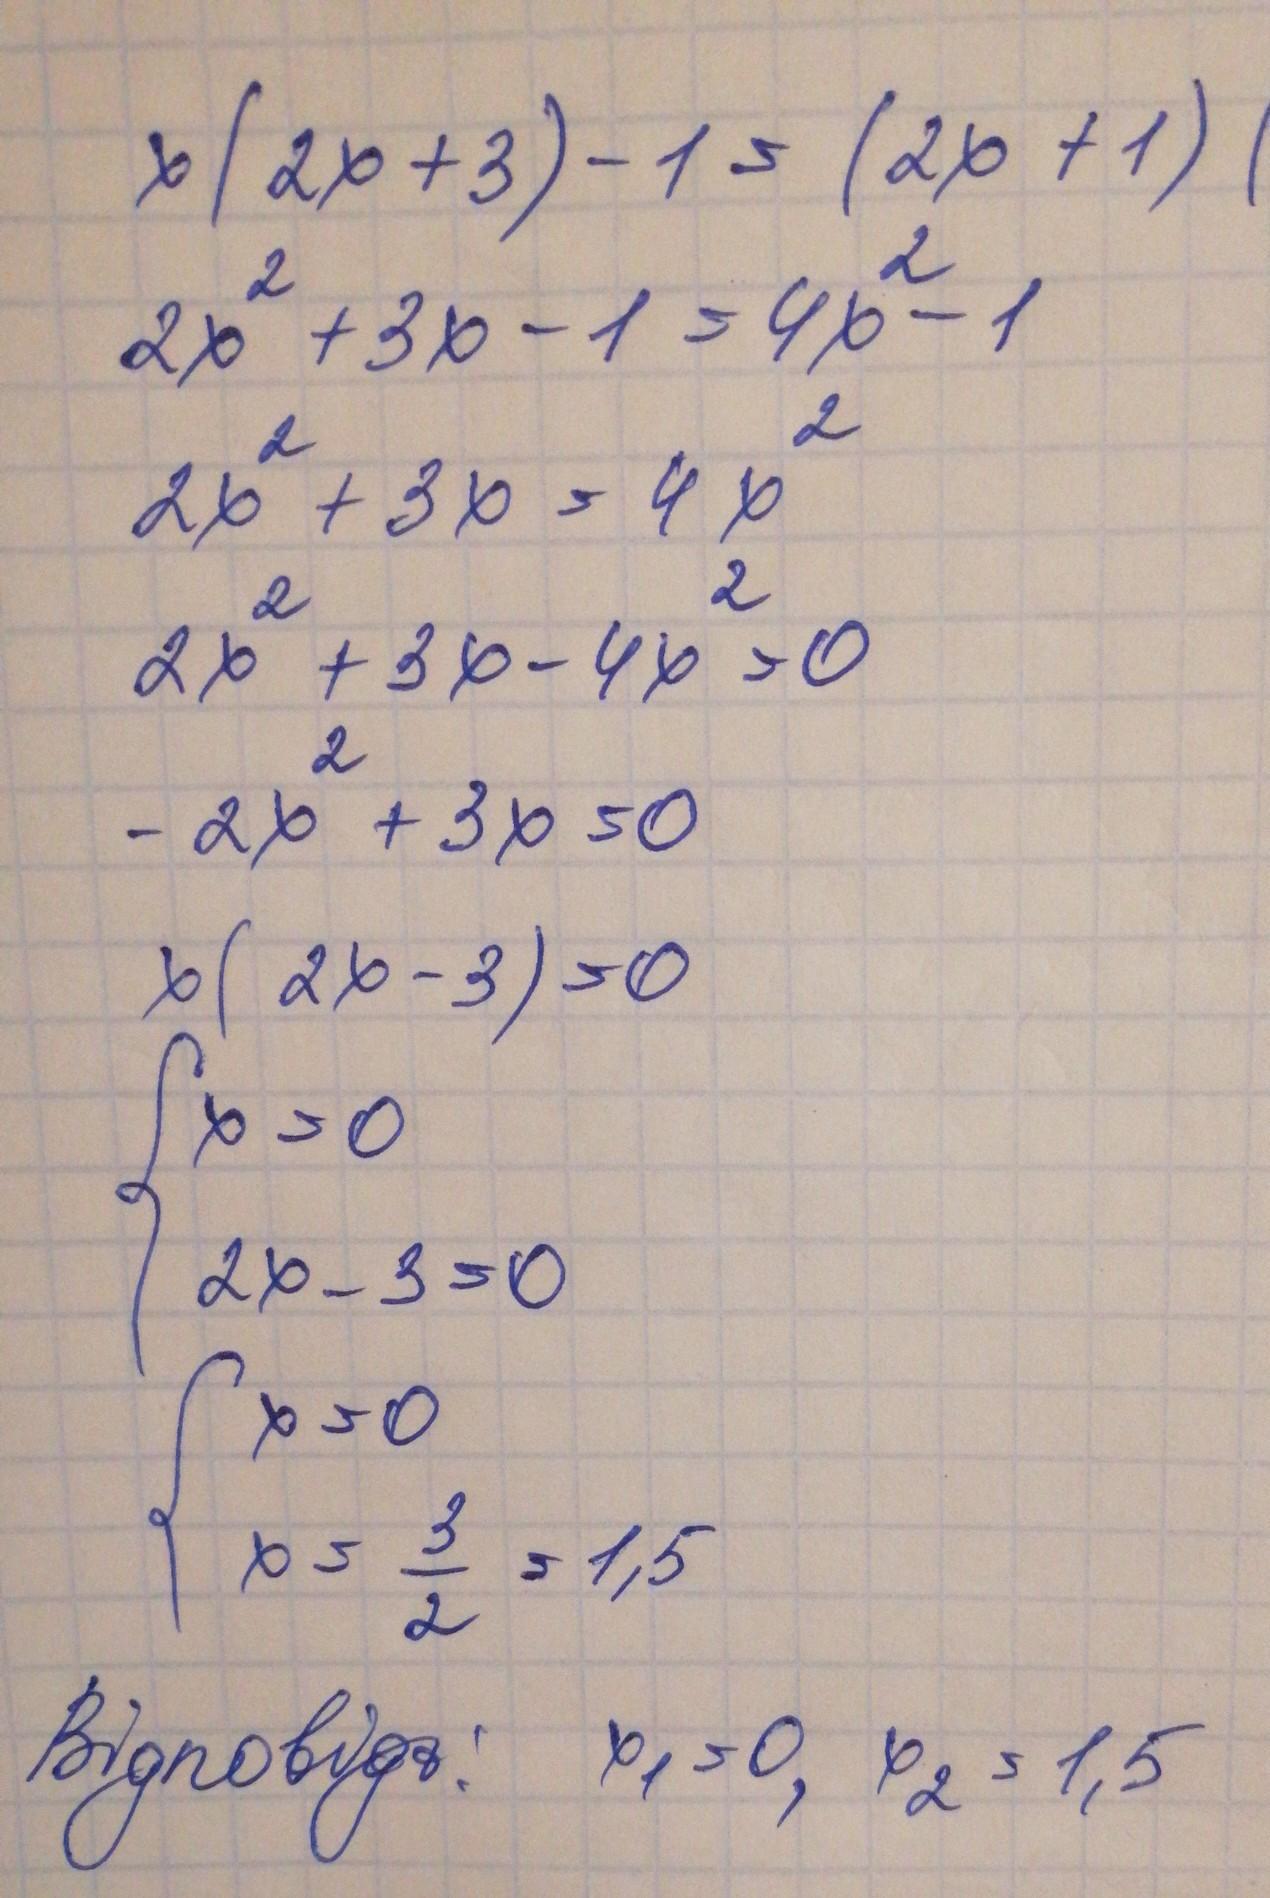 x(2x+3)-1=(2x+1)(
2x²+3x-1=4x²-1
2x²+3x=4x²
2x²+3x-4x²=0
-2x²+3x=0
x(2x-3)=0
{x=0
2x-3=0
{x=0
x=3/2=1,5
Відповідь: x₁=0, x₂=1,5